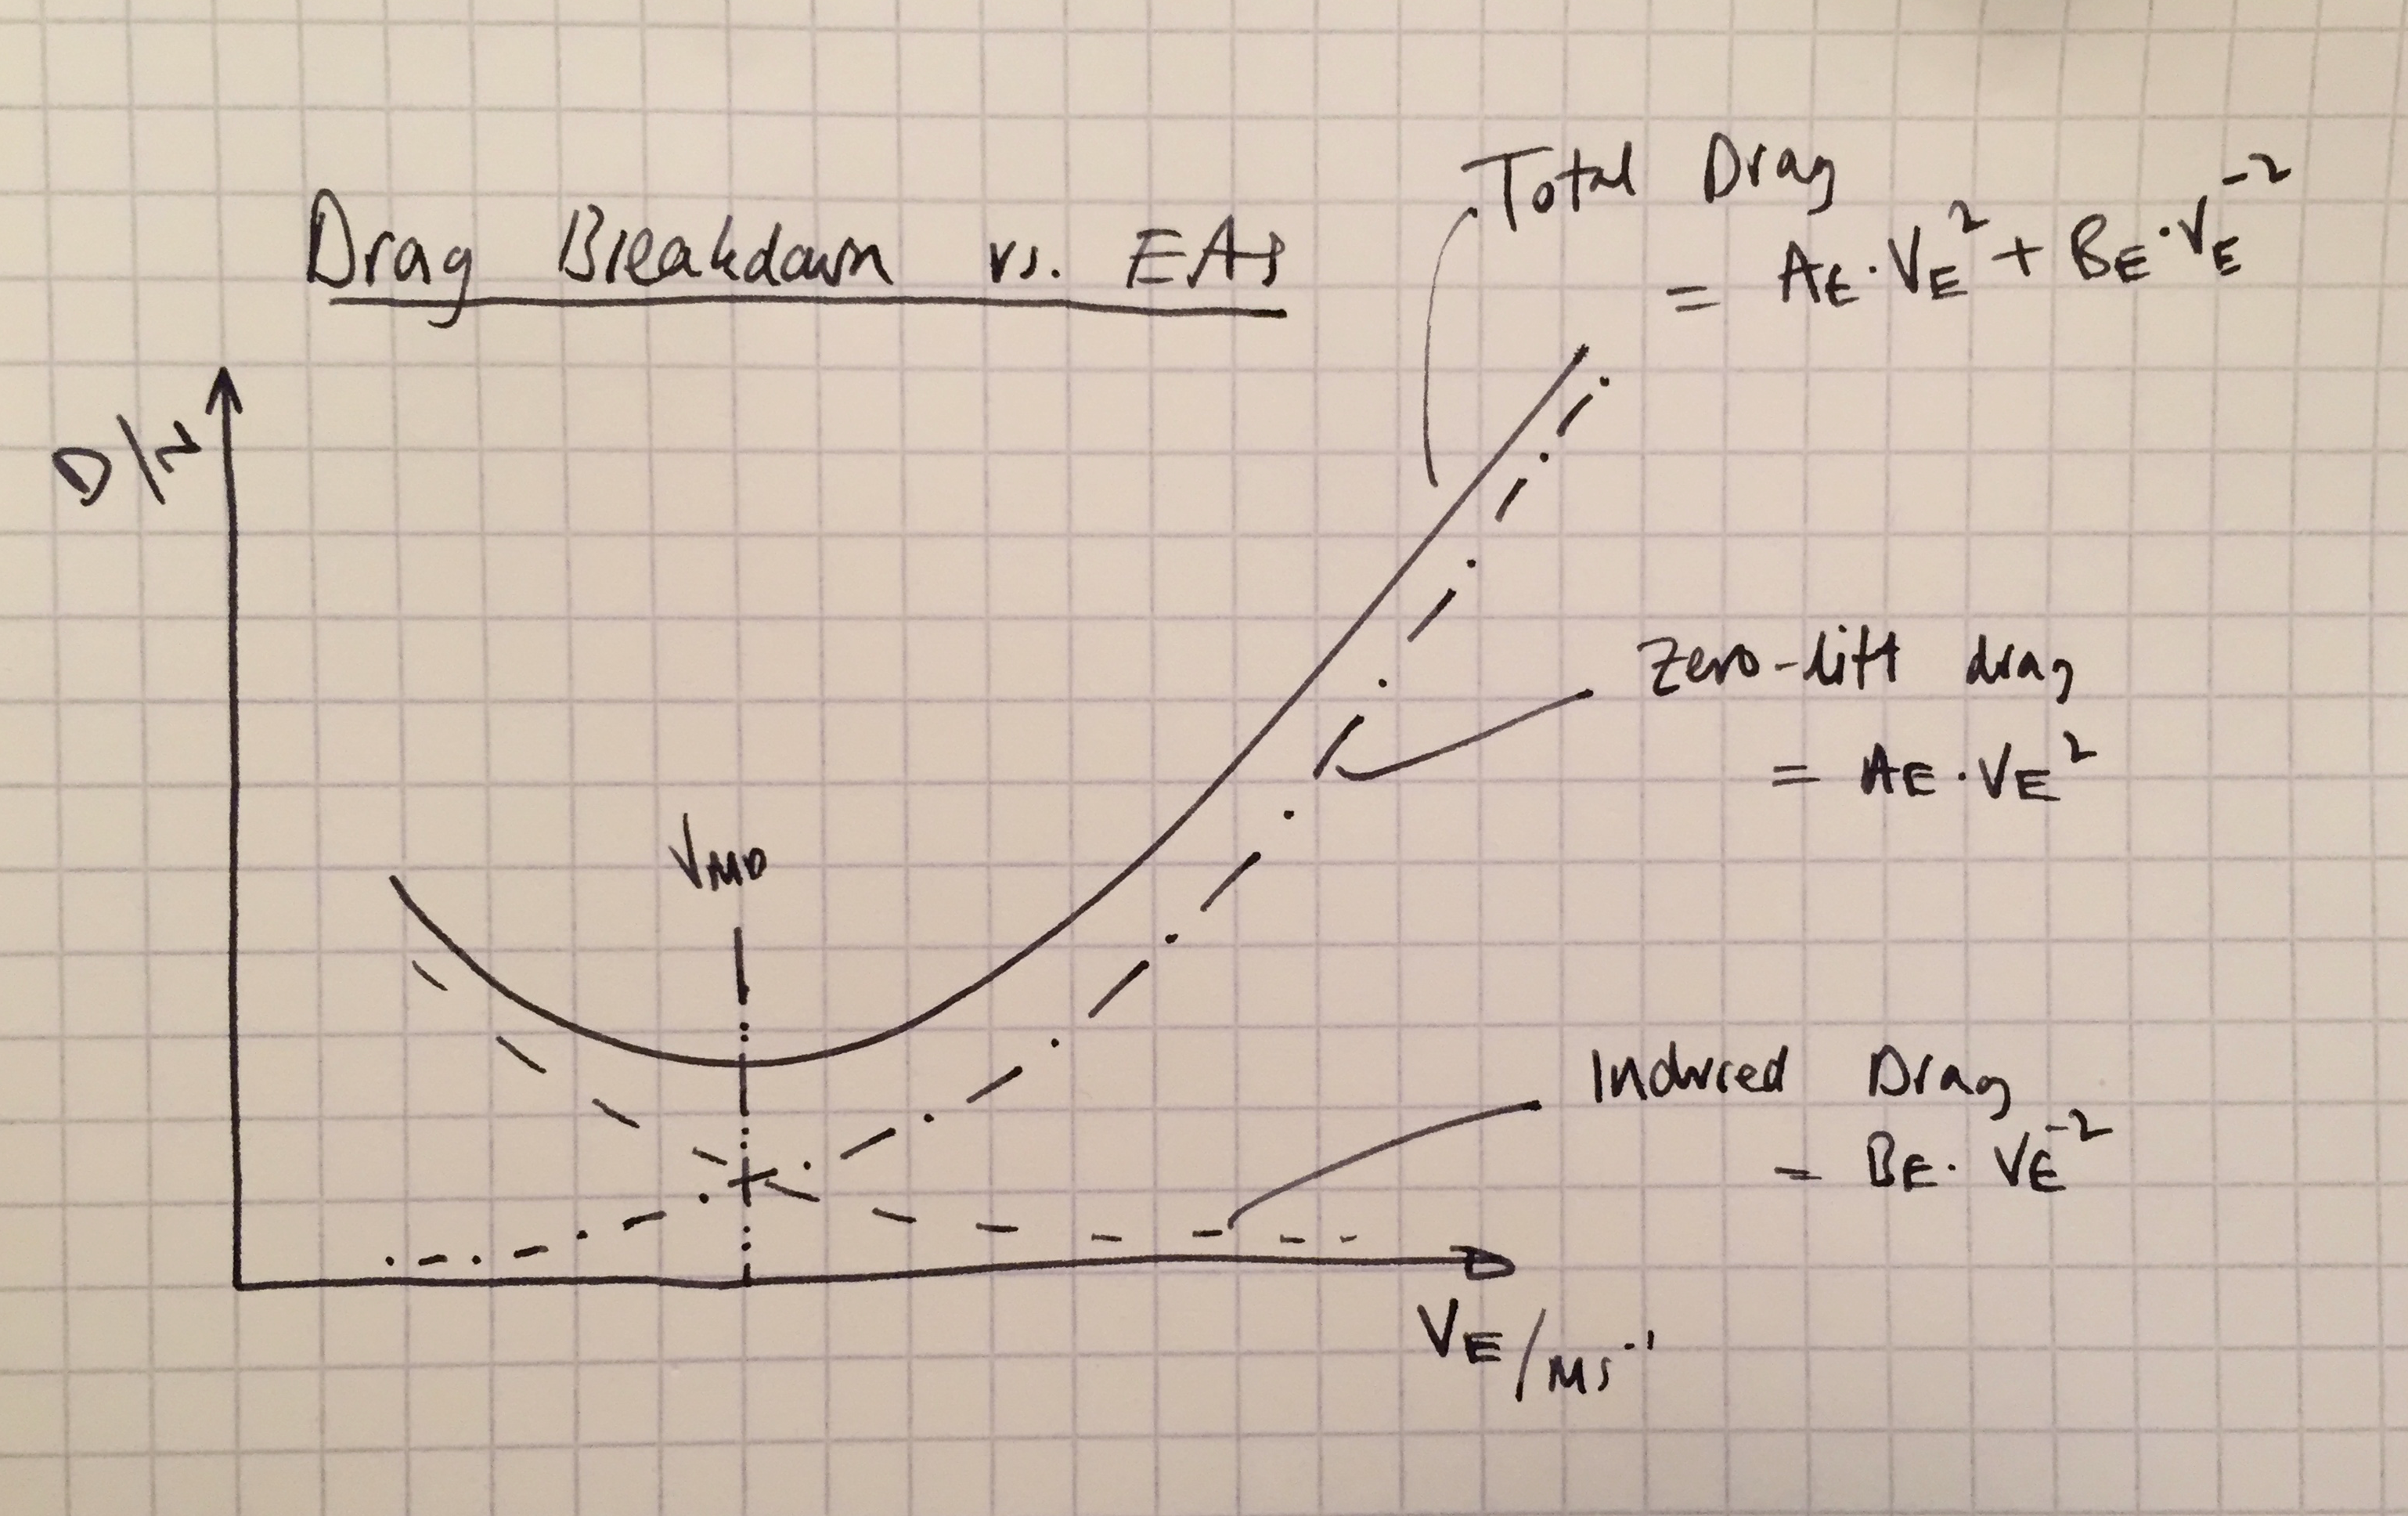 Drag Breakdown vs. EAS
Total Drag
= A_E · V_E² + B_E · V_E⁻²
D/N
Zero-lift drag
= A_E · V_E²
V_MD
Induced Drag
= B_E · V_E⁻²
V_E/ms⁻¹